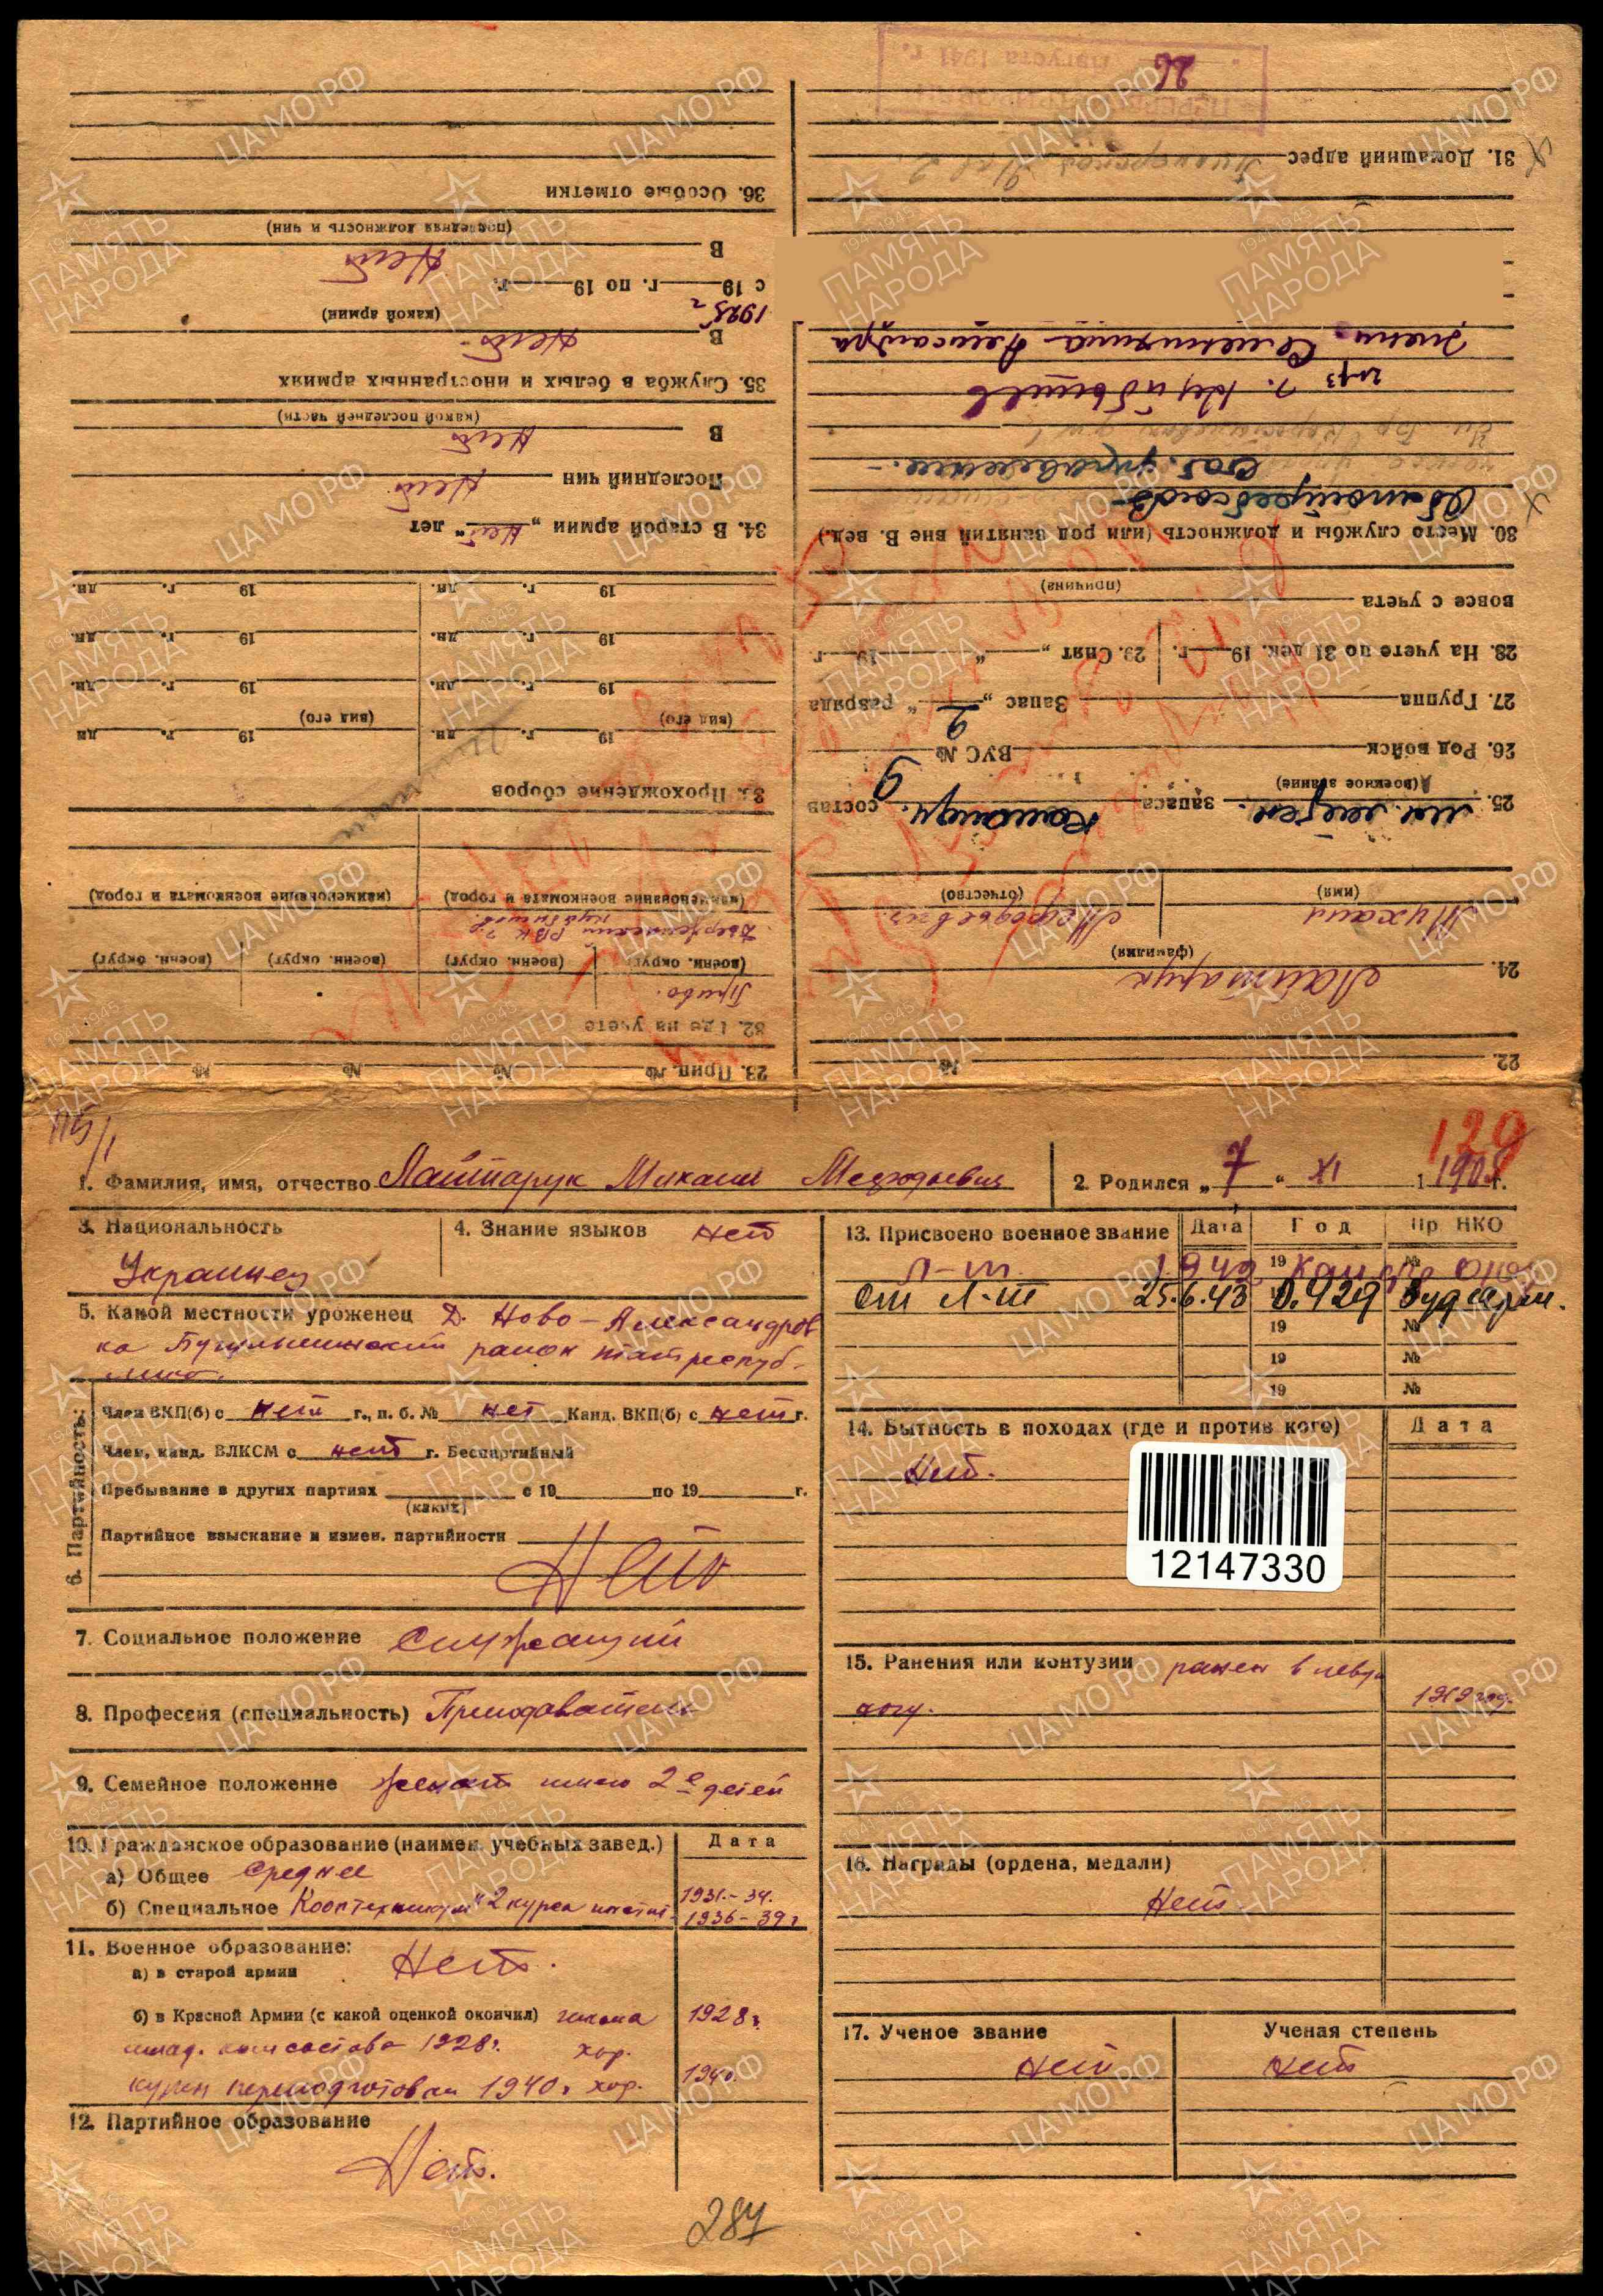 1. Фамилия, имя, отчество Лайтарук Михаил Мефодьевич
2. Родился „ 7 “ XI 1908 г.
3. Национальность
Украинец
4. Знание языков нет
5. Какой местности уроженец Д. Ново-Александров
ка Бугульминский район татреспуб-
лика.
6. Партийность:
Член ВКП(б) с нет г., п. б. № нет Канд. ВКП(б) с нет г.
Член, канд. ВЛКСМ с нет г. Беспартийный
Пребывание в других партиях с 19 по 19 г.
(каких)
Партийное взыскание и измен. партийности
Нет
7. Социальное положение служащий
8. Профессия (специальность) Преподаватель
9. Семейное положение женат имею 2е детей
10. Гражданское образование (наимен. учебных завед.) Дата
а) Общее Среднее
б) Специальное Кооптехникум 2 курса 1931.-34.
1936-39 г
11. Военное образование:
а) в старой армии Нет.
б) в Красной Армии (с какой оценкой окончил) школа 1928 г.
млад. комсостава 1928 г. хор.
курсы переподготовки 1940 г хор. 1940
12. Партийное образование
Нет.
287
13. Присвоено военное звание Дата Год Пр НКО
л-т 1942 19 №
ст л-т 25.6.43 0.429
19 №
19 №
19 №
14. Бытность в походах (где и против кого) Дата
Нет.
12147330
15. Ранения или контузии ранен в левую
ногу. 1919 год.
16. Награды (ордена, медали)
Нет.
17. Ученое звание Ученая степень
нет нет
129
22. №
23. Прип. № № № №
24. Лайтарук
(фамилия)
Михаил Мефодьевич
(имя) (отчество)
25. мл. лейтен. запаса команд. состав
(военное звание)
26. Род войск ВУС № 9
27. Группа Запас „ 2 “ разряда
28. На учете по 31 дек. 19 г. 29. Снят „ “ 19 г.
вовсе с учета
(причина)
30. Место службы и должность (или род занятий вне В. вед.)
г. Куйбышев
жена Александра
31. Домашний адрес
26 Августа 1941 г.
32. Где на учете
Приво.
(военн. округ) (военн. округ) (военн. округ) (военн. округ)
Дзержинский РВК г.
Куйбышев
(наименование военкомата и город) (наименование военкомата и город)
33. Прохождение сборов
19 г. дн. 19 г. дн.
(вид его) (вид его)
19 г. дн. 19 г. дн.
19 г. дн. 19 г. дн.
19 г. дн. 19 г. дн.
34. В старой армии „ нет “ лет
Последний чин нет
В нет
(какой последней части)
35. Служба в белых и иностранных армиях
В нет
(какой армии)
1925 г
с 19 г. по 19 г.
В Нет
(последняя должность и чин)
36. Особые отметки
ЦАМО.РФ
1941-1945
ПАМЯТЬ
НАРОДА